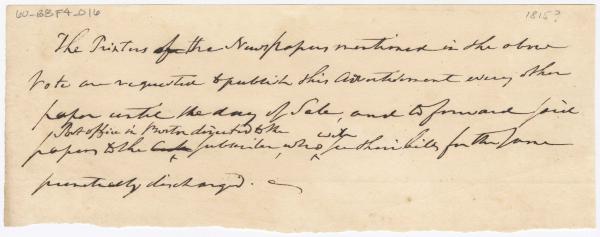 60-BBF4-016
1815?
The Printers of the Newspapers mentioned in the above
Vote are requested to publish this Advertisement every other
paper until the day of Sale, and to forward said
Post office in Boston directed to the
papers to the subscriber, who will see their bills for the same
punctually discharged.